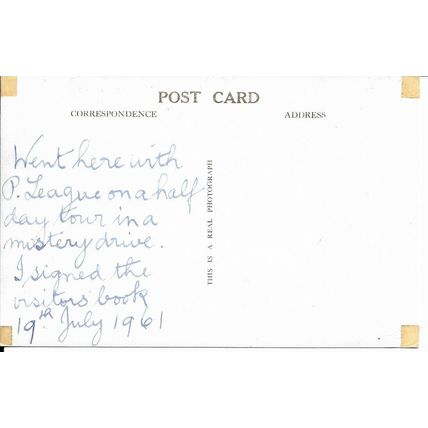 POST CARD
CORRESPONDENCE
ADDRESS
Went here with
P. League on a half
day tour in a
mistery drive.
I signed the
visitors' book
19th July 1961
THIS IS A REAL PHOTOGRAPH